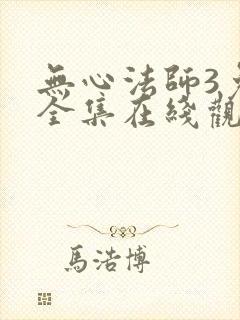 無心法師3
全集在綫觀
馬浩博